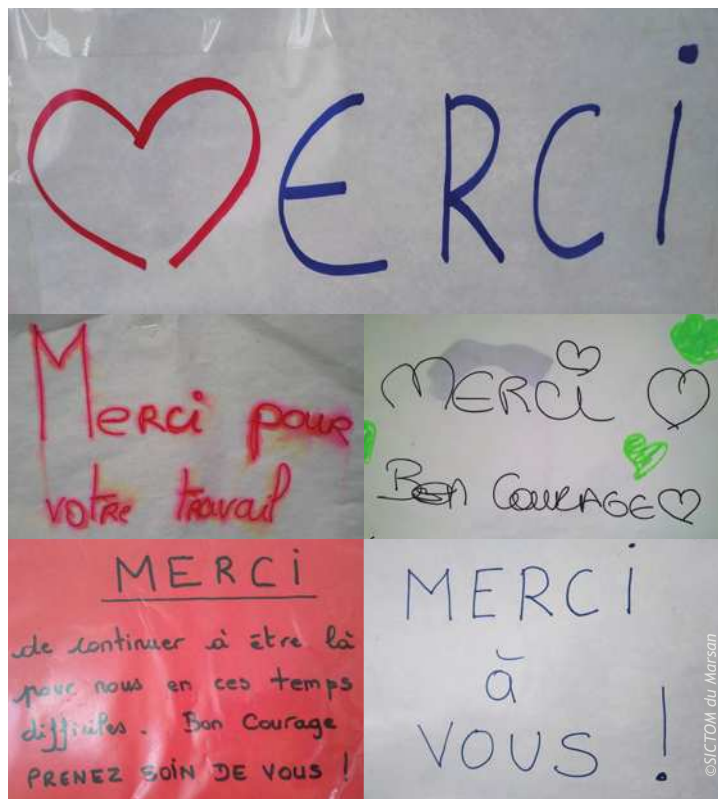 MERCi
Merci pour
votre travail
MERCi
Bon COURAGE
MERCi
de continuer à être là
pour nous en ces temps
difficiles. Bon Courage
PRENEZ SOIN DE VOUS !
MERCi
à
VOUS !
©SICTOM du Marsan